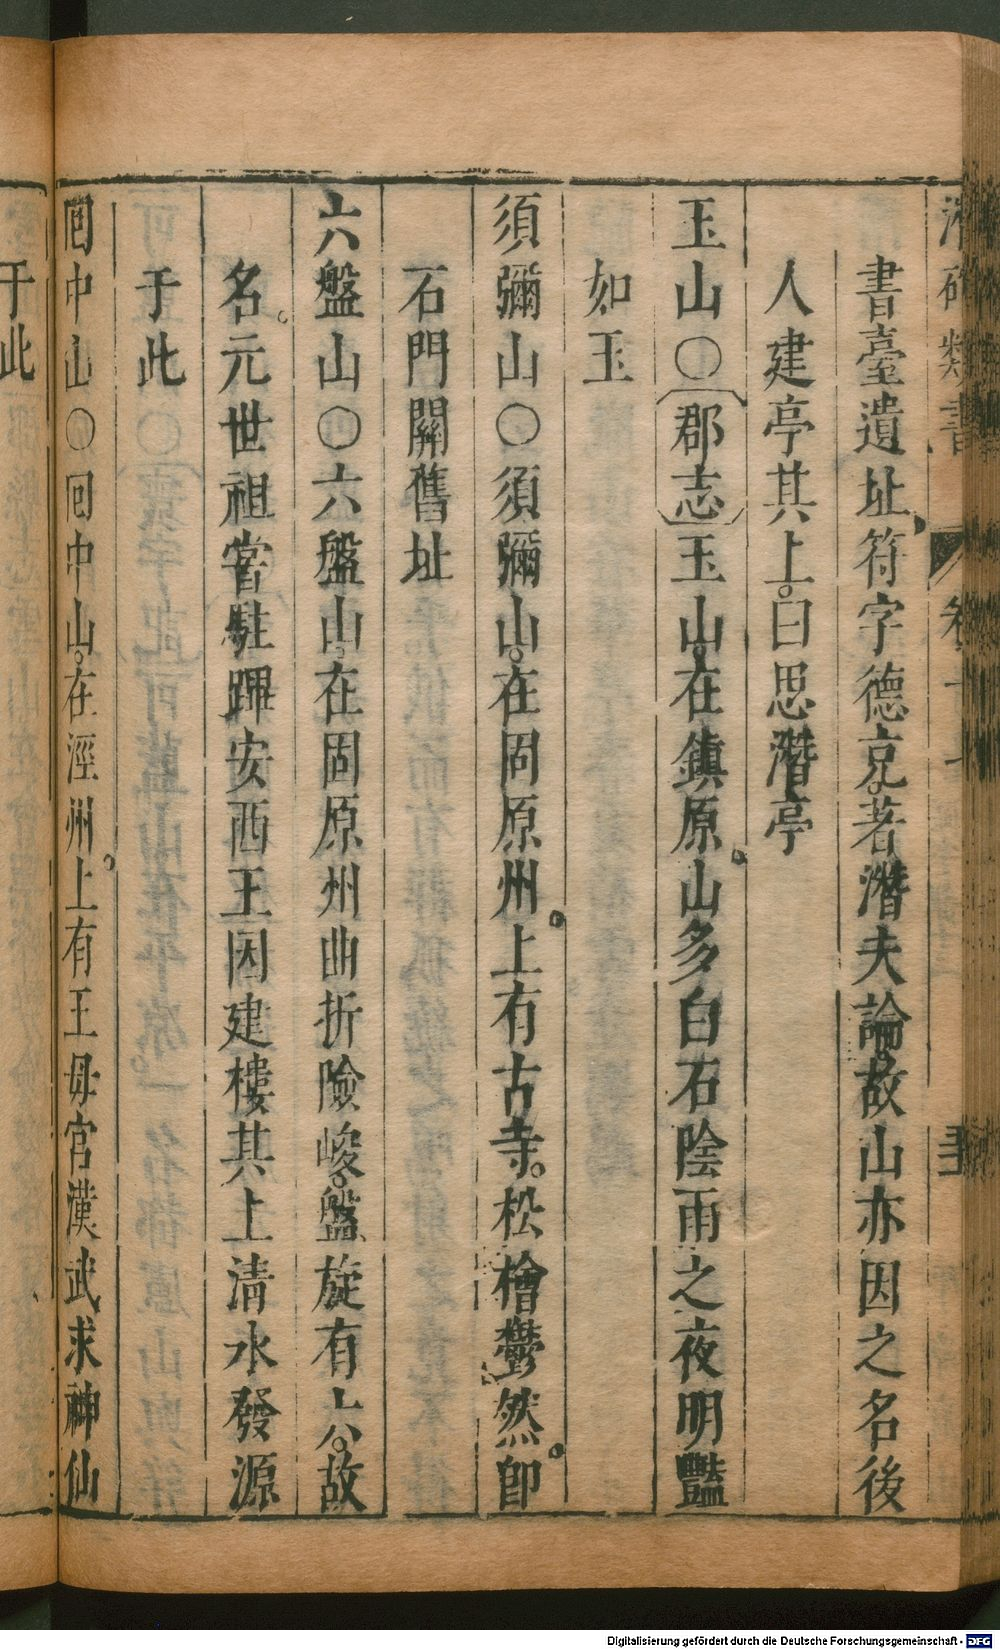 潛確類書 卷二十
書臺遺址符字德亮著潛夫論故山亦因之名後
人建亭其上曰思潛亭
玉山○郡志玉山在鎮原山多白石陰雨之夜明豔
如玉
須彌山○須彌山在固原州上有古寺松檜鬱然即
石門關舊址
六盤山○六盤山在固原州曲折險峻盤旋有六故
名元世祖嘗駐蹕安西王因建樓其上清水發源
于此
囘中山○囘中山在涇州上有王毋宮漢武求神仙
于此
Digitalisierung gefördert durch die Deutsche Forschungsgemeinschaft - DFG